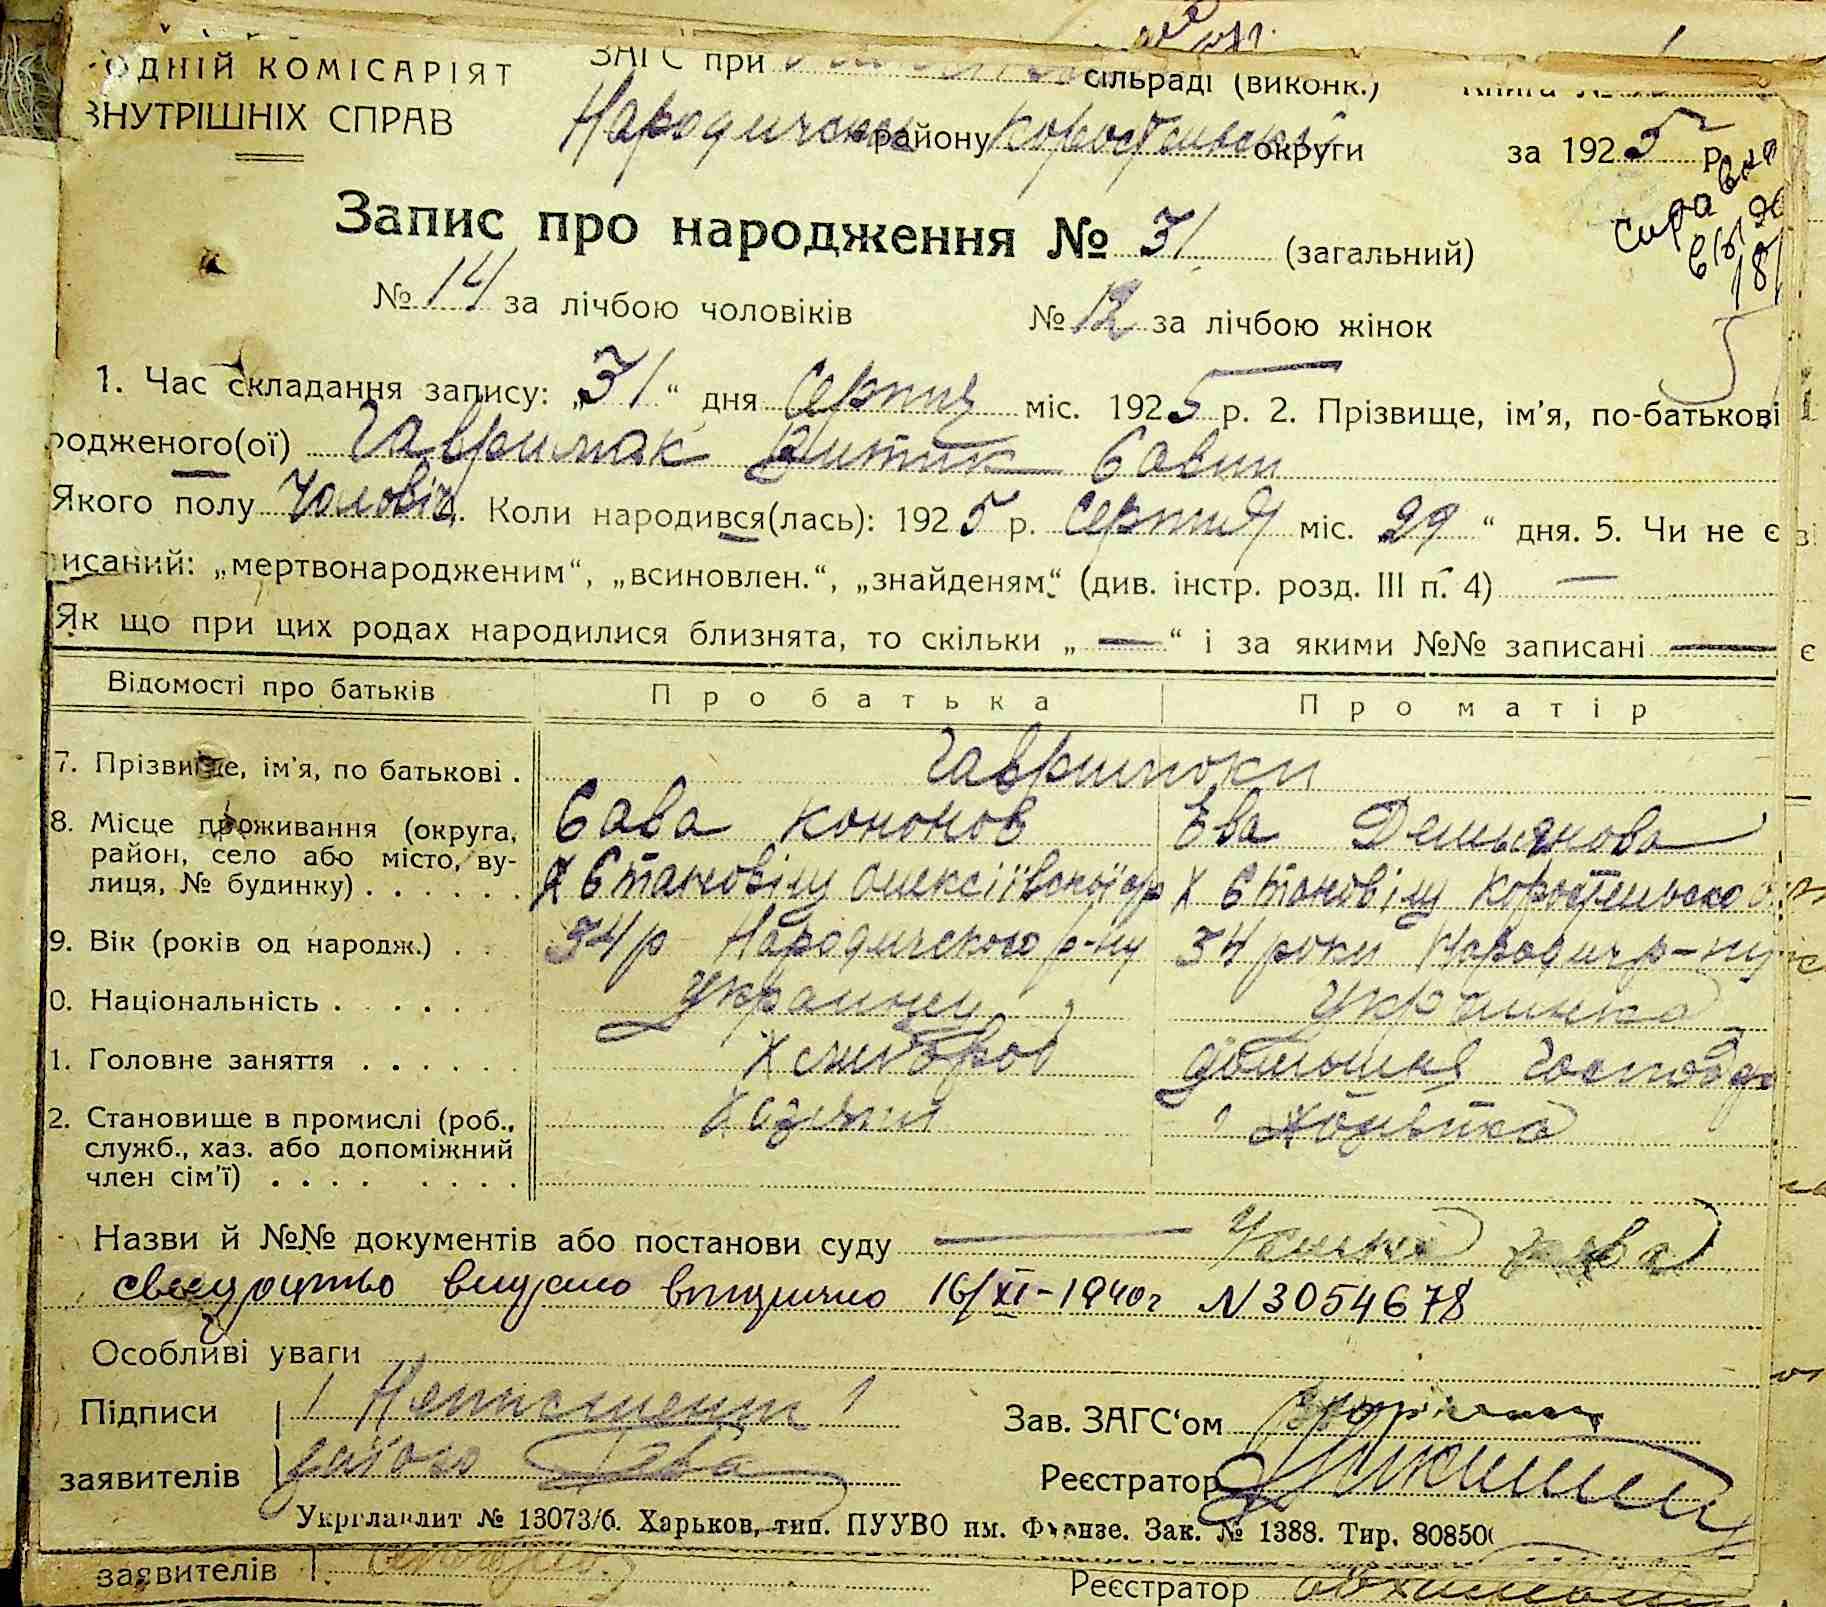 ОДНІЙ КОМІСАРІЯТ
ВНУТРІШНІХ СПРАВ
ЗАГС при сільраді (виконк.)
Народичськ району Коростенської округи
за 1925 р.
Справка
Запис про народження № 31 (загальний)
№ 14 за лічбою чоловіків № 12 за лічбою жінок
1. Час складання запису: „31“ дня Серпня міс. 1925 р. 2. Прізвище, ім'я, по-батькові
родженого(ої) Савин
Якого полу Чоловіч. Коли народився(лась): 1925 р. Серпня міс. 29 “ дня. 5. Чи не є
исаний: „мертвонародженим“, „всиновлен.“, „знайденям“ (див. інстр. розд. III п. 4) —
Як що при цих родах народилися близнята, то скільки „ — “ і за якими №№ записані —
Відомості про батьків Про батька Про матір
7. Прізвище, ім'я, по батькові .
8. Місце проживання (округа, район, село або місто, вулиця, № будинку) . . . . . .
Сава Кононов Ева Демьянова
Х Становіщ Олексіївської Х Становіщ Коростенсько
9. Вік (років од народж.) . . 34 р Народичского р-ну 34 роки Народич р-ну
0. Національність . . . . . . Украинец Украинка
1. Головне заняття . . . . . . Хлибороб домошня господ
2. Становище в промислі (роб., служб., хаз. або допоміжний член сім'ї) . . . . . . . .
Хазяин
Назви й №№ документів або постанови суду —
свидоцтво видано вторично 16/XI-1940г N 3054678
Особливі уваги
Підписи Зав. ЗАГС'ом
заявителів Реєстратор
Укрглавлит № 13073/б. Харьков, тип. ПУУВО им. Фрунзе. Зак. № 1388. Тир. 80850
заявителів Реєстратор